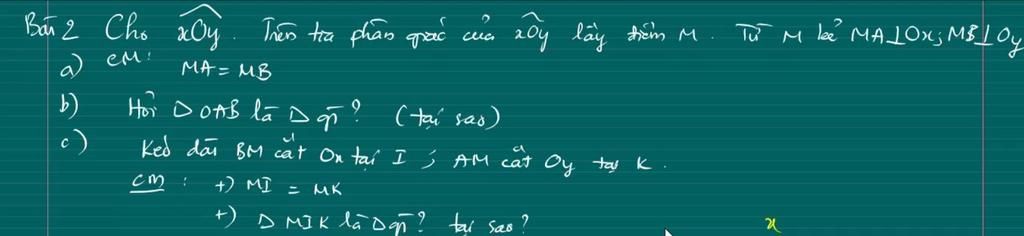 Bài 2 Cho xOy. Trên tia phân giác của xOy lấy điểm M. Từ M kẻ MA⊥Ox; MB⊥Oy
a) CM: MA = MB
b) Hỏi Δ OAB là Δ gì? (tại sao)
c) Kéo dài BM cắt Ox tại I; AM cắt Oy tại K.
cm: +) MI = MK
+) Δ MIK là Δ gì? tại sao?
x